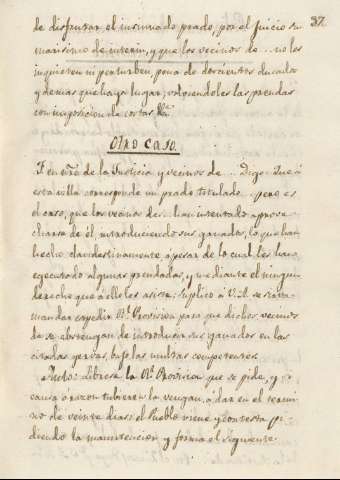 37
de disfrutar el insinuado prado, por el Juicio su
marisimo de interin, y que los vecinos de... no les
inquieten ni perturben, pena de doscientos ducados
y demas que haya lugar; volviendoles las prendas
con imposicion de costas &a
Otro caso
F. en nre de la Justicia y vecinos de... Digo: Que á
esta villa corresponde un prado titulado... pero es
el caso, que los vecinos de... han intentado aprove-
charse de él introduciendo sus ganados, lo que han
hecho clandestinamente á pesar de lo cual les han
egecutado algunas prendadas, y mediante el ningun
derecho que á ellos les asiste; Suplico á V.A. se sirva
mandar expedir Rl. Provision para que dichos vecinos
de se abstengan de introducir sus ganados en las
citadas yerbas, bajo las multas competentes.
Auto: Librese la Rl. Provision que se pide, y si
causa ó razon tubieren la vengan á dar en el termi-
no de veinte dias: el Pueblo viene y contesta pi-
diendo la manutencion y forma el siguiente